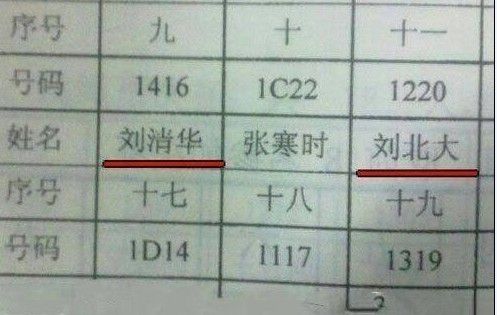 序号 九 十 十一
号码 1416 1C22 1220
姓名 刘清华 张寒时 刘北大
序号 十七 十八 十九
号码 1D14 1117 1319